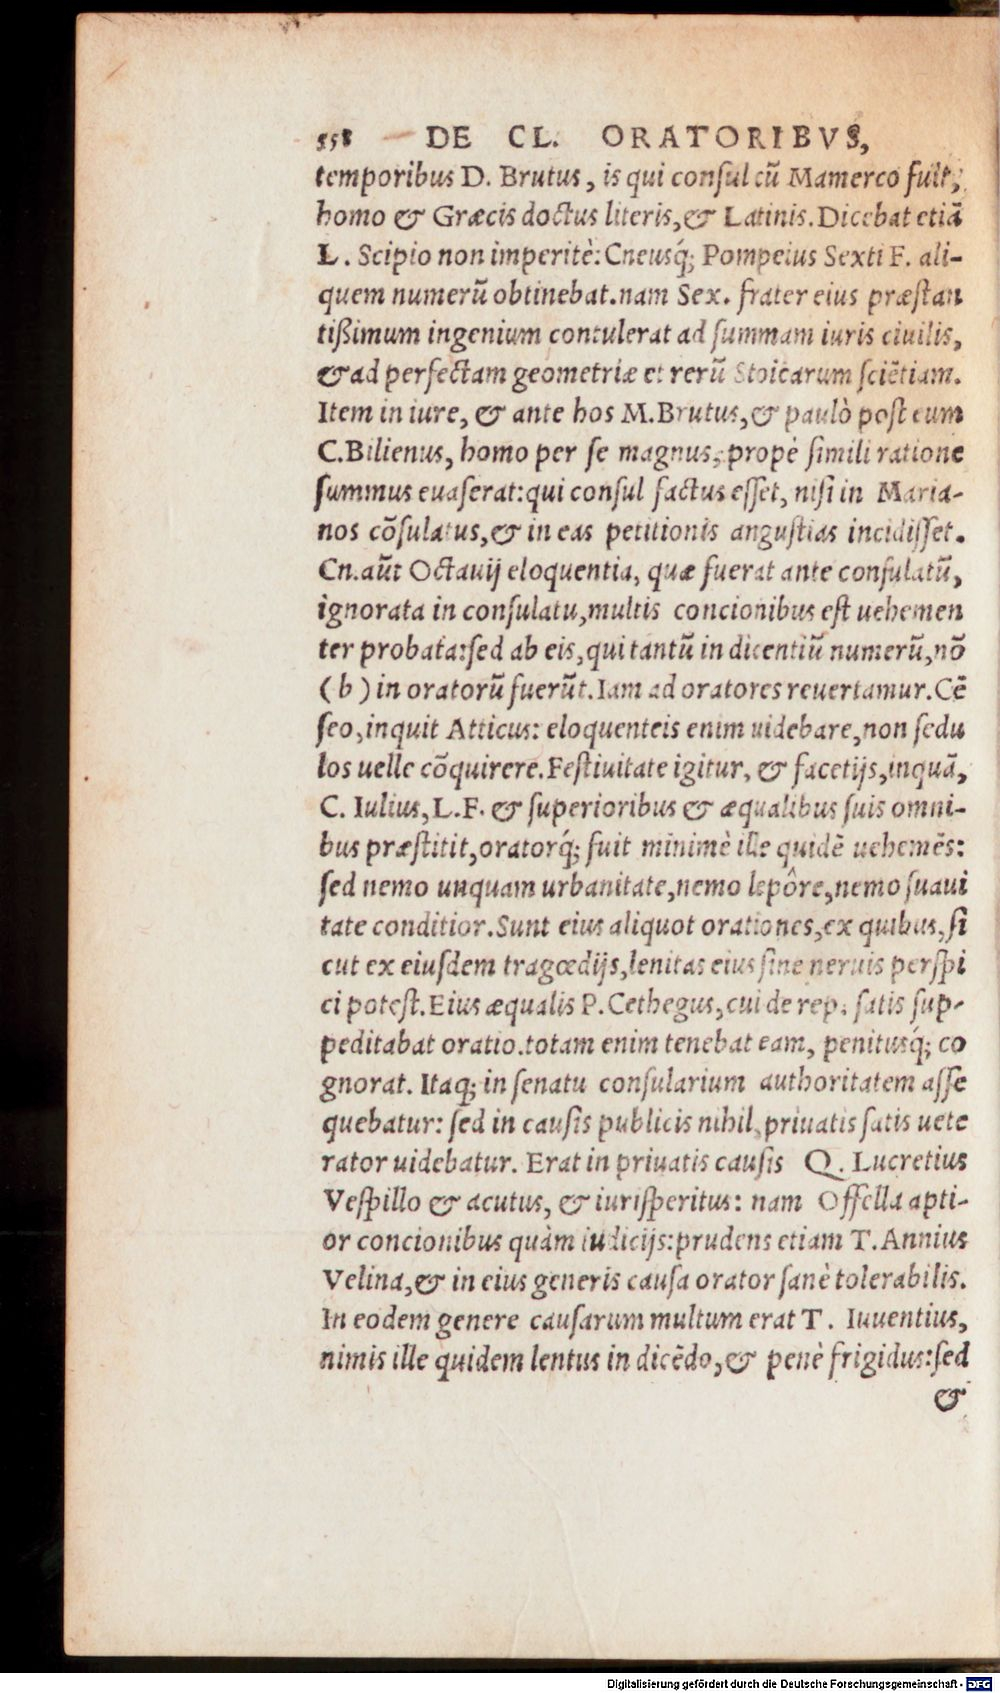 558 DE CL. ORATORIBVS,
temporibus D. Brutus, is qui conſul cū Mamerco fuit,
homo & Græcis doctus literis, & Latinis. Dicebat etiā
L. Scipio non imperitè: Cneusq́; Pompeius Sexti F. ali-
quem numerū obtinebat. nam Sex. frater eius præſtan
tißimum ingenium contulerat ad ſummam iuris ciuilis,
& ad perfectam geometriæ et rerū Stoicarum ſciētiam.
Item in iure, & ante hos M. Brutus, & paulò poſt eum
C. Bilienus, homo per ſe magnus, propè ſimili ratione
ſummus euaſerat: qui conſul factus eſſet, niſi in Maria-
nos cōſulatus, & in eas petitionis anguſtias incidiſſet.
Cn. aūt Octauij eloquentia, quæ fuerat ante conſulatū,
ignorata in conſulatu, multis concionibus eſt uehemen
ter probata: ſed ab eis, qui tantū in dicentiū numerū, nō
(b) in oratorū fuerūt. Iam ad oratores reuertamur. Cē
ſeo, inquit Atticus: eloquenteis enim uidebare, non ſedu
los uelle cōquirere. Feſtiuitate igitur, & facetijs, inquā,
C. Iulius, L. F. & ſuperioribus & æqualibus ſuis omni-
bus præſtitit, oratorq́; fuit minimè ille quidē uehemēs:
ſed nemo unquam urbanitate, nemo lepôre, nemo ſuaui
tate conditior. Sunt eius aliquot orationes, ex quibus, ſi
cut ex eiuſdem tragœdijs, lenitas eius ſine neruis perſpi
ci poteſt. Eius æqualis P. Cethegus, cui de rep. ſatis ſup-
peditabat oratio. totam enim tenebat eam, penitusq́; co
gnorat. Itaq; in ſenatu conſularium authoritatem aſſe
quebatur: ſed in cauſis publicis nihil, priuatis ſatis uete
rator uidebatur. Erat in priuatis cauſis Q. Lucretius
Veſpillo & acutus, & iuriſperitus: nam Offella apti-
or concionibus quàm iudicijs: prudens etiam T. Annius
Velina, & in eius generis cauſa orator ſanè tolerabilis.
In eodem genere cauſarum multum erat T. Iuuentius,
nimis ille quidem lentus in dicēdo, & penè frigidus: ſed
&
Digitalisierung gefördert durch die Deutsche Forschungsgemeinschaft - DFG